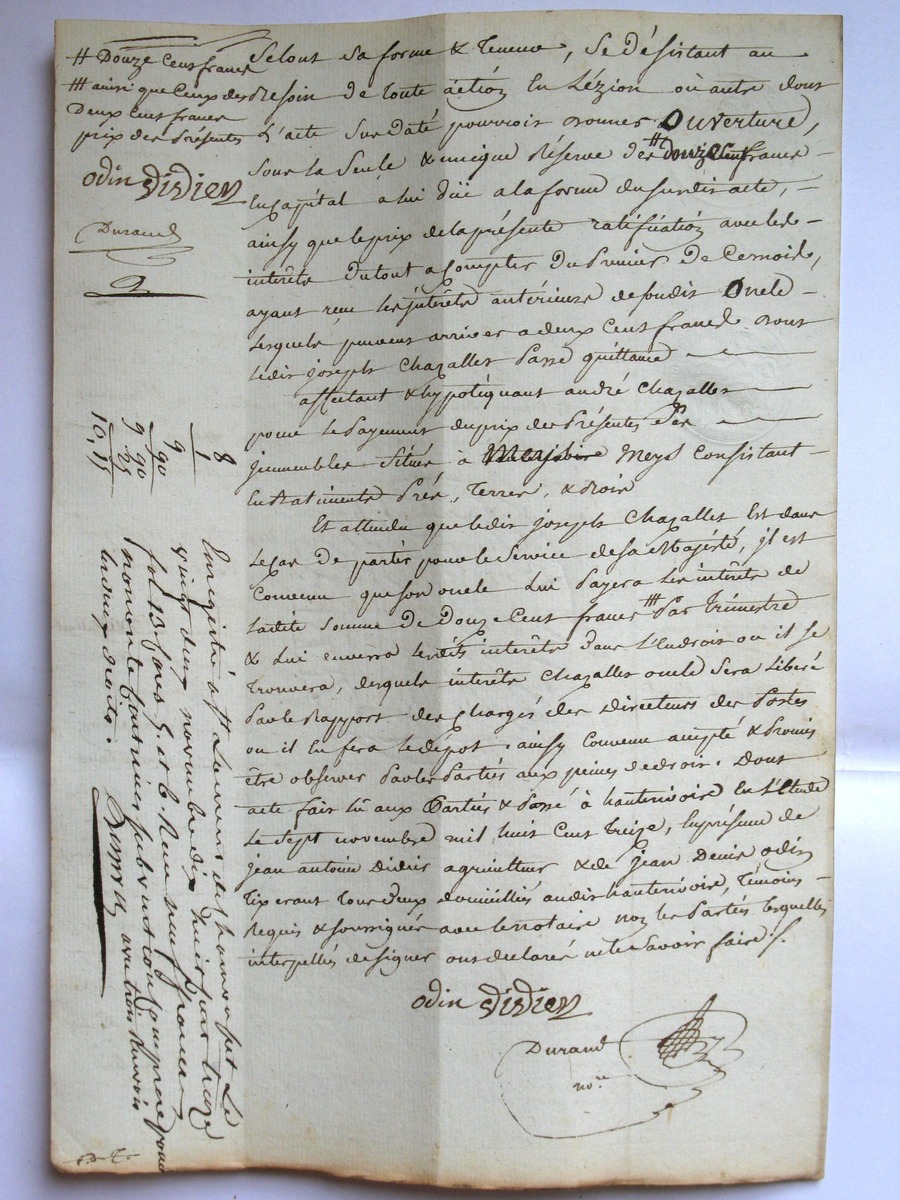 # Douze Cent francs
## ainsi que Ceux des
Deux Cent francs
prix des Présentes
odin Didier
Durand
Selont Sa forme & Teneur, Se désistant au
Besoin de Toute action En Lézion où autre dont
L'acte Sus daté pourroit donner Ouverture,
Sous la Seule & unique Réserve des # douze Cent francs
En Capital a lui Düe a la forme du susdit acte,
ainsy que le prix de la présente ratification avec les
interêts du tout a Compter du Premier de Ce mois,
ayant reçu les interêts antérieurs de sondit Oncle
Lesquels peuvent arriver a deux Cent francs dont
Ledit joseph Chazalles Passe quittance
affectant & hypotéquant andré Chazalles
pour le Payement du prix des Présentes Ses
jmmeubles Situés à Meys Consistant
En Batiments Prés, Terres, & Bois
Et attendu que ledit joseph Chazalles Est dans
Le Cas de partir pour le Service de Sa Majésté, jl est
Convenu que son oncle Lui Payera Les interêts de
Ladite Somme de Douze Cent francs ## Par Trimestre
& Lui enverra lesdits interêts dans L'Endroit ou il Se
Trouvera, desquels interêts Chazalles oncle Sera Libéré
Par le Rapport des Chargés des Directeurs des Postes
ou il En fera le dépot. ainsy Convenu accepté & Promis
être observer Par les Parties aux peines de droit. Dont
acte fait lû aux Parties & Passé à hauterivoire En L'Etude
Le Sept novembre mil huit Cent Treize, En présence de
jean antoine Didier agriculteur & de jean Denis odin
Tixerant Tous Deux domiciliés audit hauterivoire, Témoins
Requis & Soussignés avec le notaire non les Parties lesquelles
interpellés de signer ont déclaré ne le Savoir faire ./.
odin Didier
Durand
no.re
8
1
9
90
9 90
25
10,15
Enregistré à St Laurent de Chamousset Le
vingt deux novembre dix huit cent treize
fol. 13 Cases 5 et 6 Reçu neuf francs
nonante Centimes subvention comprise pour
les deux droits.